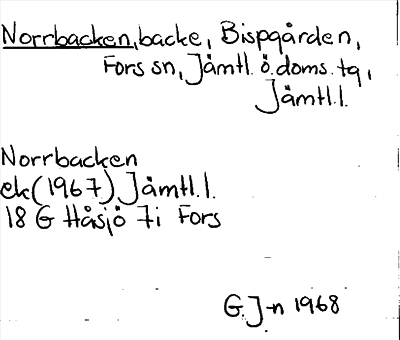 Norrbacken, backe, Bispgården,
Fors sn, Jämtl. ö. doms. tg,
Jämtl.l.
Norrbacken
ek (1967) Jämtl.l.
18 G Håsjö 7i Fors
G. J-n 1968